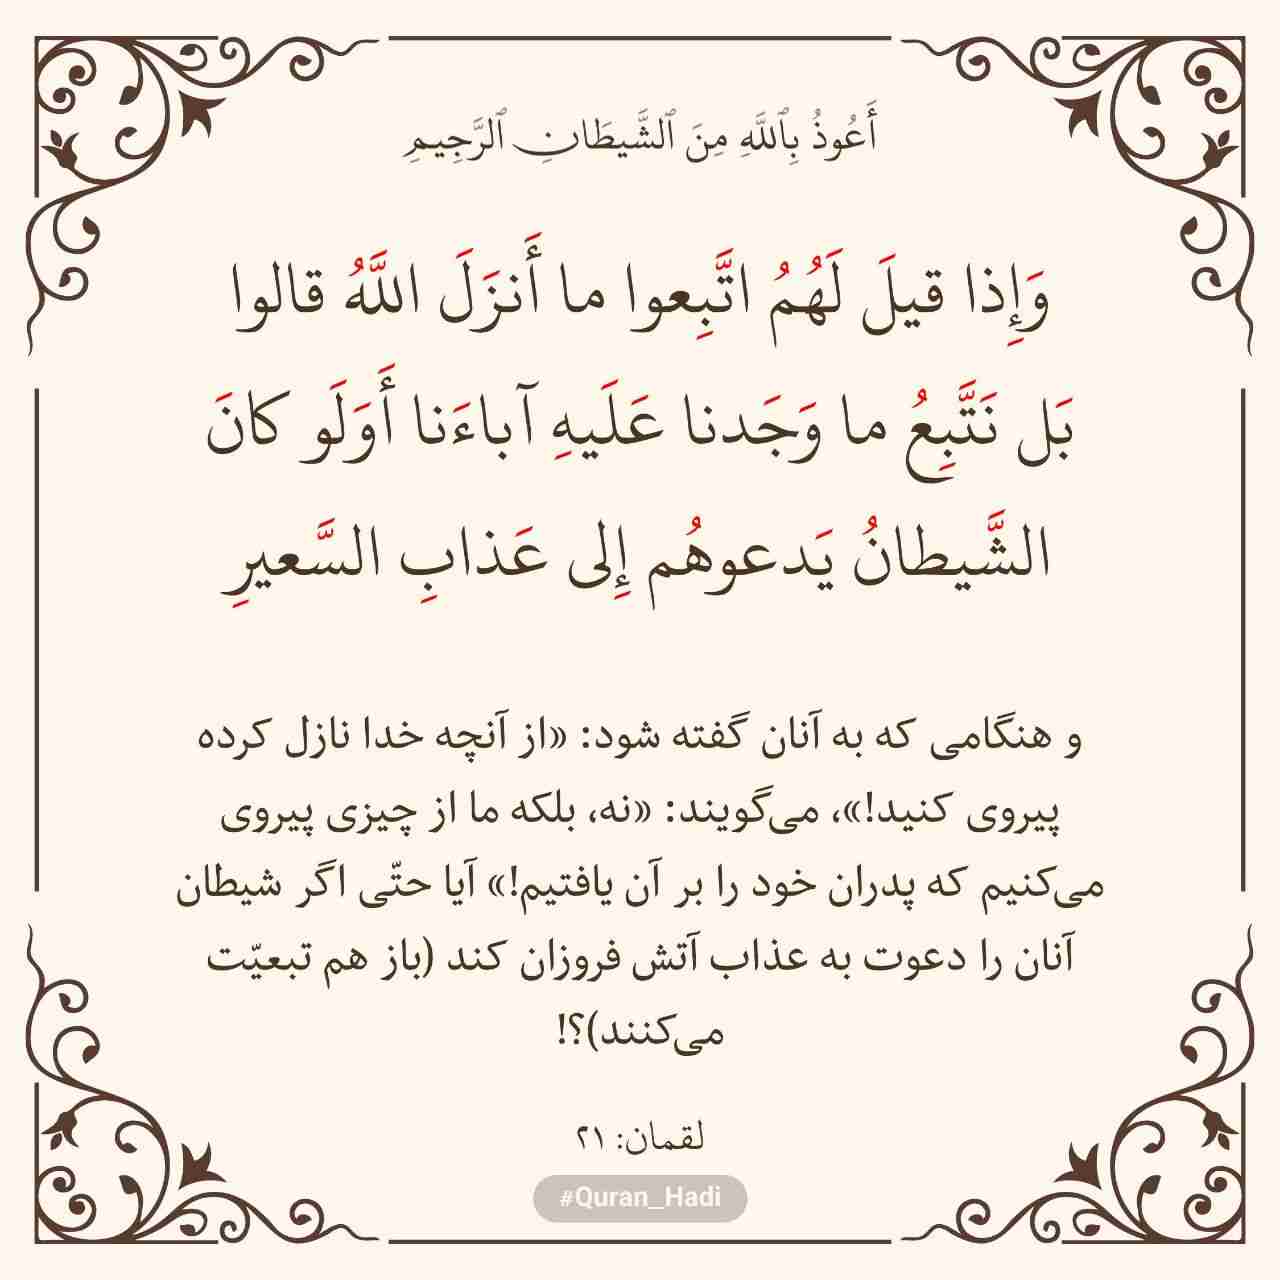 أَعُوذُ بِٱللَّهِ مِنَ ٱلشَّيطَانِ ٱلرَّجِيمِ
وَإِذا قيلَ لَهُمُ اتَّبِعوا ما أَنزَلَ اللَّهُ قالوا
بَل نَتَّبِعُ ما وَجَدنا عَلَيهِ آباءَنا أَوَلَو كانَ
الشَّيطانُ يَدعوهُم إِلى عَذابِ السَّعيرِ
و هنگامی که به آنان گفته شود: «از آنچه خدا نازل کرده
پیروی کنید!»، می‌گویند: «نه، بلکه ما از چیزی پیروی
می‌کنیم که پدران خود را بر آن یافتیم!» آیا حتّی اگر شیطان
آنان را دعوت به عذاب آتش فروزان کند (باز هم تبعیّت
می‌کنند)؟!
لقمان: ۲۱
#Quran_Hadi